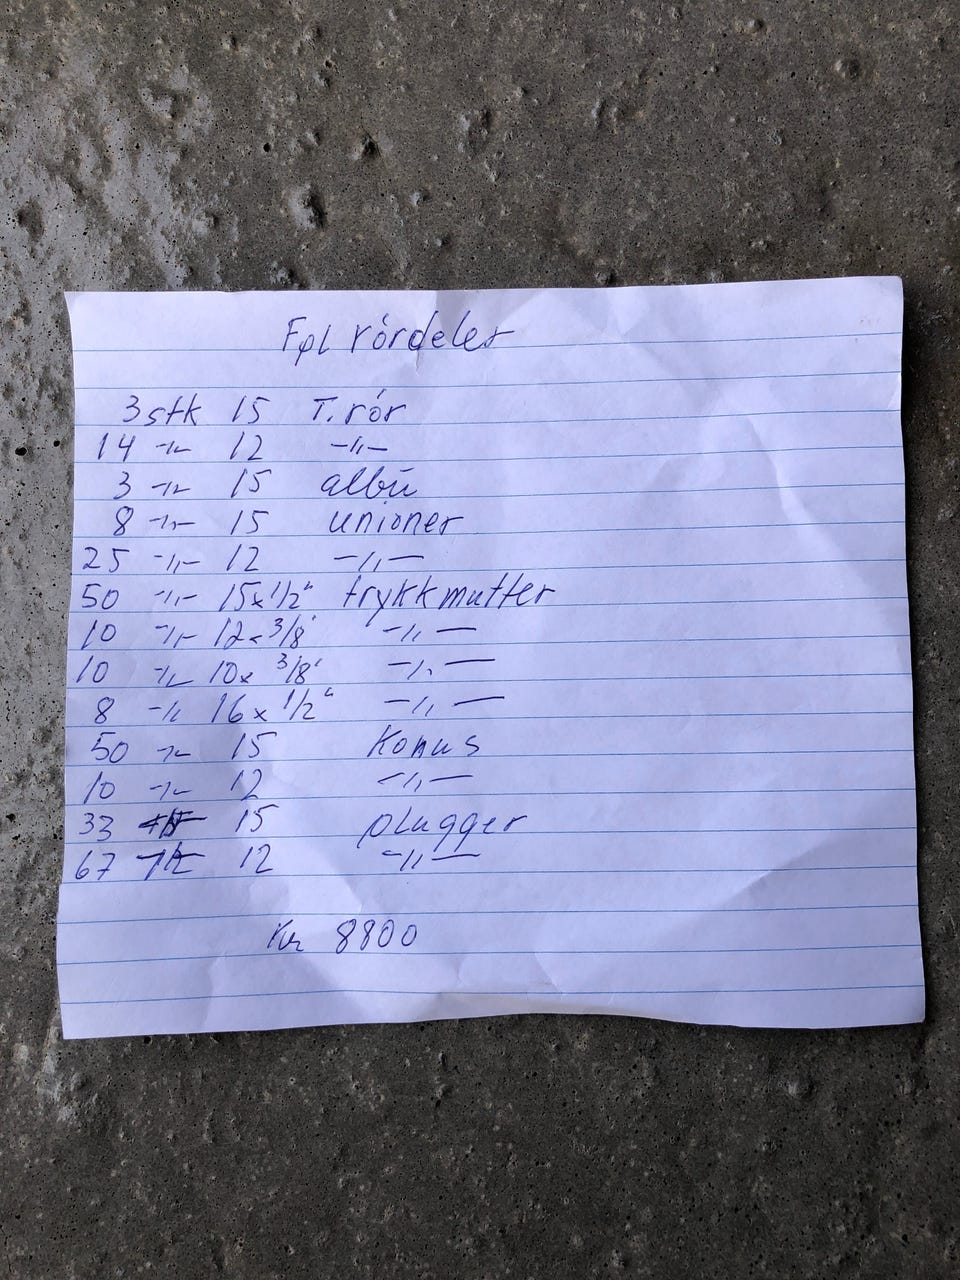 Fpl rórdeler
3 stk 15 T. rór
14 -"- 12 -"-
3 -"- 15 albū
8 -"- 15 unioner
25 -"- 12 -"-
50 -"- 15x1/2" trykkmutter
10 -"- 12x3/8" -"-
10 -"- 10x 3/8" -"-
8 -"- 16x1/2" -"-
50 -"- 15 Konus
10 -"- 12 -"-
33 15 plugger
67 12 -"-
Kr 8800